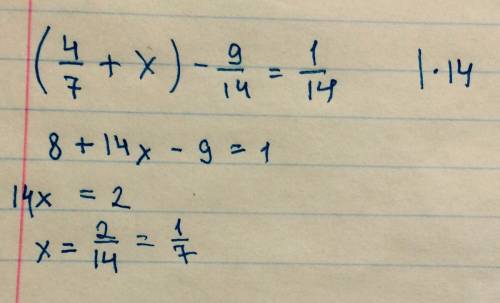 (4/7 + x) - 9/14 = 1/14 | · 14
8 + 14x - 9 = 1
14x = 2
x = 2/14 = 1/7